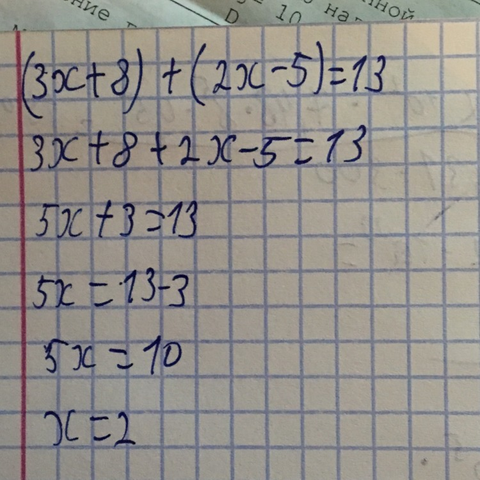 D
10
(3x+8)+(2x-5)=13
3x+8+2x-5=13
5x+3=13
5x=13-3
5x=10
x=2